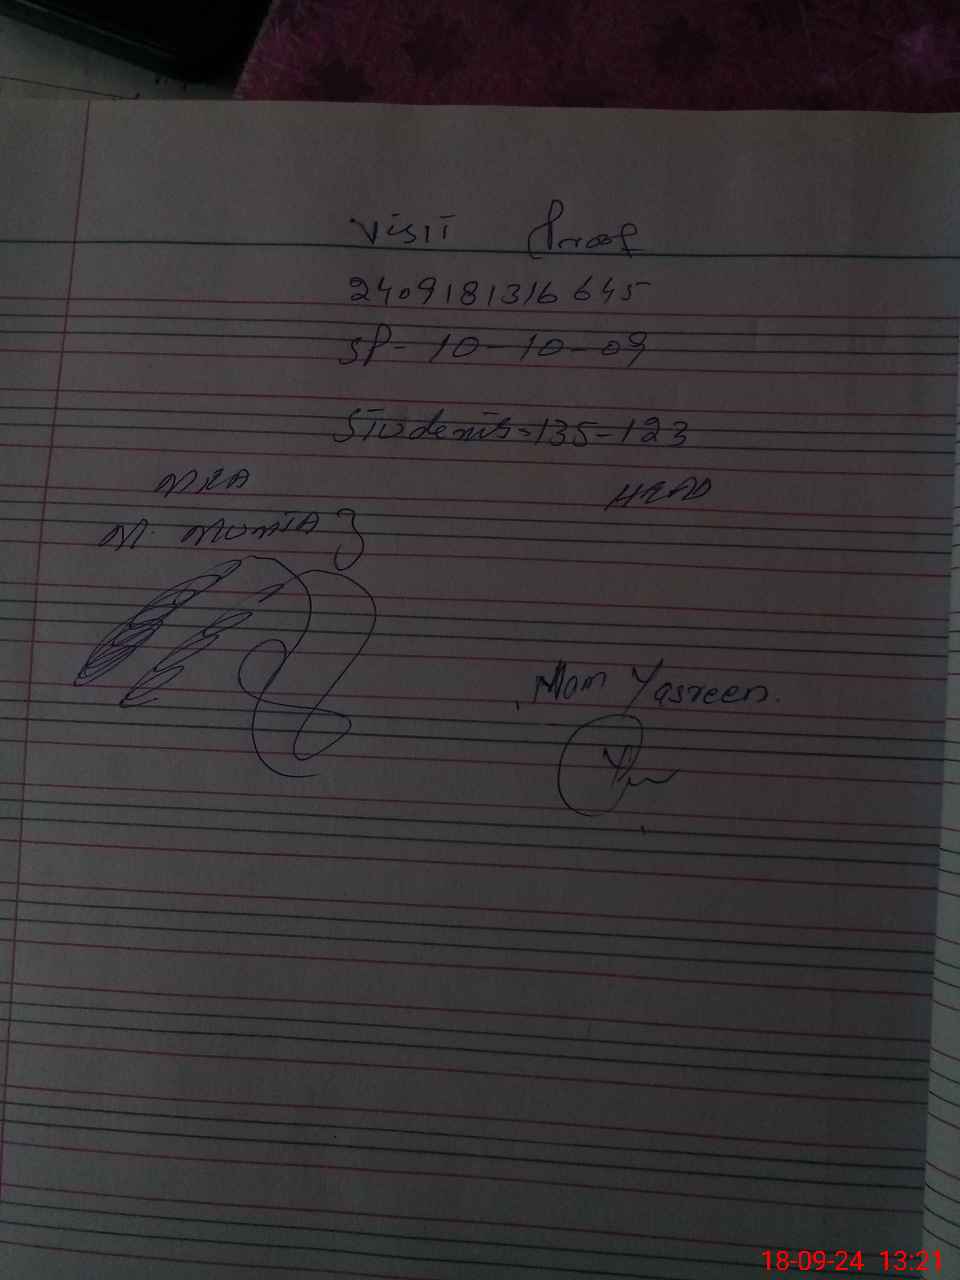 Visit Proof
2409181316645
SP- 10-10-09
Students=135-123
MEA
HEAD
M. MUMTAZ
Mam Yasreen.
18-09-24 13:21